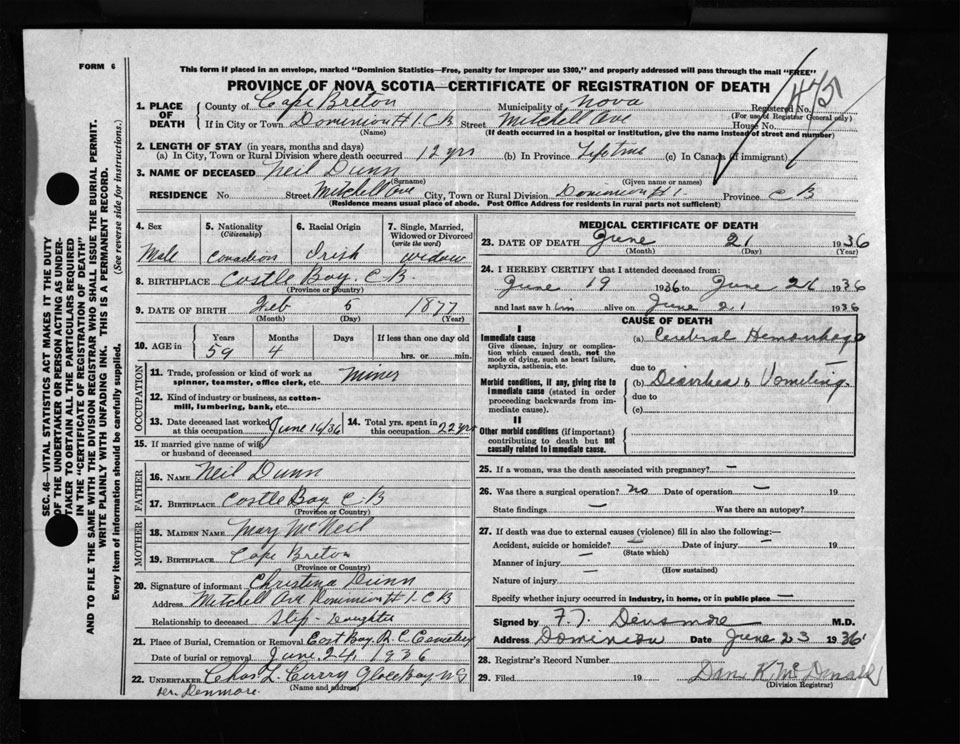 FORM 6
This form if placed in an envelope, marked "Dominion Statistics—Free, penalty for improper use $300," and properly addressed will pass through the mail "FREE"
PROVINCE OF NOVA SCOTIA—CERTIFICATE OF REGISTRATION OF DEATH
1. PLACE OF DEATH
County of Cape Breton Municipality of Nova Registered No.
(For use of Registrar General only)
If in City or Town Dominion # 1. C B Street Mitchell Ave House No.
(Name) (If death occurred in a hospital or institution, give the name instead of street and number)
2. LENGTH OF STAY (in years, months and days)
(a) In City, Town or Rural Division where death occurred 12 yrs (b) In Province Lifetime (c) In Canada (if immigrant)
3. NAME OF DECEASED Neil Dunn
(Surname) (Given name or names)
RESIDENCE No Street Mitchell Ave City, Town or Rural Division Dominion # 1. Province C B
(Residence means usual place of abode. Post Office Address for residents in rural parts not sufficient)
4. Sex
Male
5. Nationality
(Citizenship)
Canadian
6. Racial Origin
Irish
7. Single, Married, Widowed or Divorced
(write the word)
widow
8. BIRTHPLACE Costle Bay. C B.
(Province or Country)
9. DATE OF BIRTH Feb 5 1877
(Month) (Day) (Year)
10. AGE in
Years Months Days If less than one day old
59 4 hrs. or min.
OCCUPATION
11. Trade, profession or kind of work as spinner, teamster, office clerk, etc. Miner
12. Kind of industry or business, as cotton-mill, lumbering, bank, etc.
13. Date deceased last worked at this occupation June 19/36
14. Total yrs. spent in this occupation 22 yrs
15. If married give name of wife or husband of deceased
FATHER
16. NAME Neil Dunn
17. BIRTHPLACE Costle Bay C B
(Province or Country)
MOTHER
18. MAIDEN NAME Mary McNeil
19. BIRTHPLACE Cape Breton
(Province or Country)
20. Signature of informant Christina Dunn
Address Mitchell Ave Dominion # 1. C B
Relationship to deceased Step-Daughter
21. Place of Burial, Cremation or Removal East Bay. R. C Cemetery
Date of burial or removal June. 24, 1936
22. UNDERTAKER Chas L. Curry Glace Bay N S
(Name and address)
MEDICAL CERTIFICATE OF DEATH
23. DATE OF DEATH June 21 1936
(Month) (Day) (Year)
24. I HEREBY CERTIFY that I attended deceased from:
June 19 1936 to June 21 1936
and last saw him alive on June 21 1936
CAUSE OF DEATH
I
Immediate cause
Give disease, injury or complication which caused death, not the mode of dying, such as heart failure, asphyxia, asthenia, etc.
(a) Cerebral Hemorrhage
due to
Morbid conditions, if any, giving rise to immediate cause (stated in order proceeding backwards from immediate cause).
(b) Diarrhea & Vomeling.
due to
(c)
II
Other morbid conditions (if important) contributing to death but not causally related to immediate cause.
25. If a woman, was the death associated with pregnancy? —
26. Was there a surgical operation? no Date of operation — 19
State findings — Was there an autopsy?
27. If death was due to external causes (violence) fill in also the following:—
Accident, suicide or homicide? — Date of injury — 19
(State which)
Manner of injury —
(How sustained)
Nature of injury —
Specify whether injury occurred in industry, in home, or in public place —
Signed by F. J. Densmore M.D.
Address Dominion Date June 23 1936
28. Registrar's Record Number
29. Filed 19 Dan K. McDonald
(Division Registrar)
SEC. 46—VITAL STATISTICS ACT MAKES IT THE DUTY
OF THE UNDERTAKER OR PERSON ACTING AS UNDER-
TAKER TO OBTAIN ALL THE PARTICULARS REQUIRED
IN THE "CERTIFICATE OF REGISTRATION OF DEATH"
AND TO FILE THE SAME WITH THE DIVISION REGISTRAR WHO SHALL ISSUE THE BURIAL PERMIT.
WRITE PLAINLY WITH UNFADING INK. THIS IS A PERMANENT RECORD.
Every item of information should be carefully supplied. (See reverse side for instructions.)